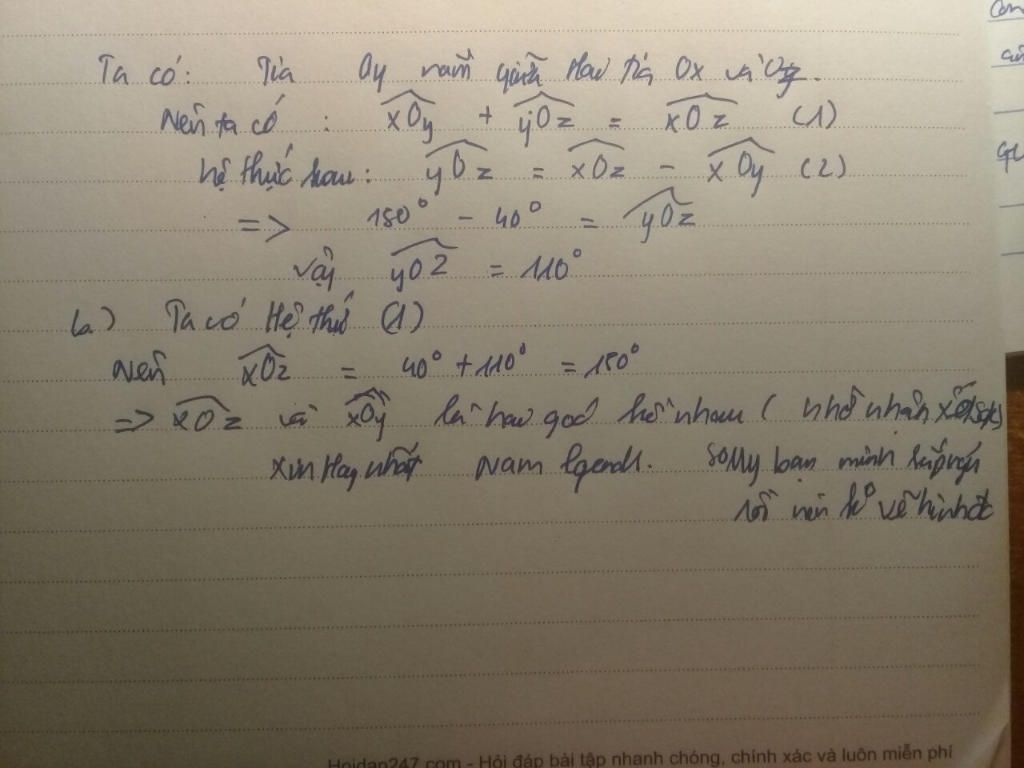 Ta có: Tia Oy nằm giữa Hai tia Ox và Oz.
Nên ta có : xOy + yOz = xOz (1)
hệ thức sau: yOz = xOz - xOy (2)
=> 150° - 40° = yOz
Vậy yOz = 110°
b.) Ta có Hệ thức (1)
Nên xOz = 40° + 110° = 150°
=> xOz và xOy là hai góc kề nhau ( nhớ nhận xét
xin Hay nhất Nam lgend. Sorry bạn mình sắp
rồi nên ko vẽ hình đc
Hoidap247.com - Hỏi đáp bài tập nhanh chóng, chính xác và luôn miễn phí